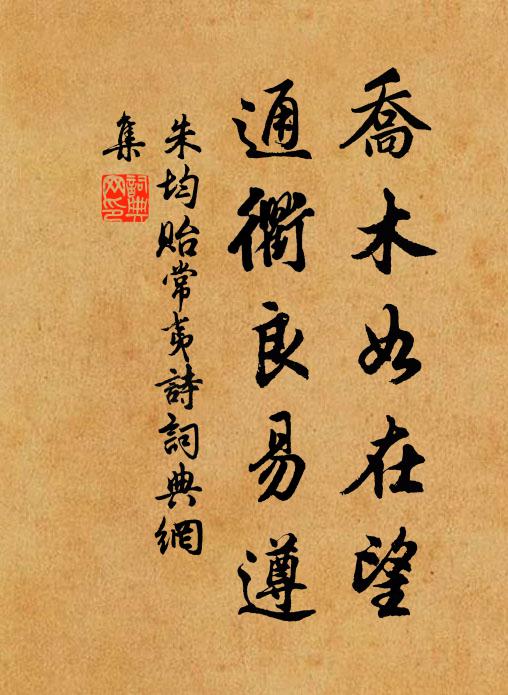 喬木如在望
通衢良易遵
朱均貽常夷詩詞典網
集
詞典網印